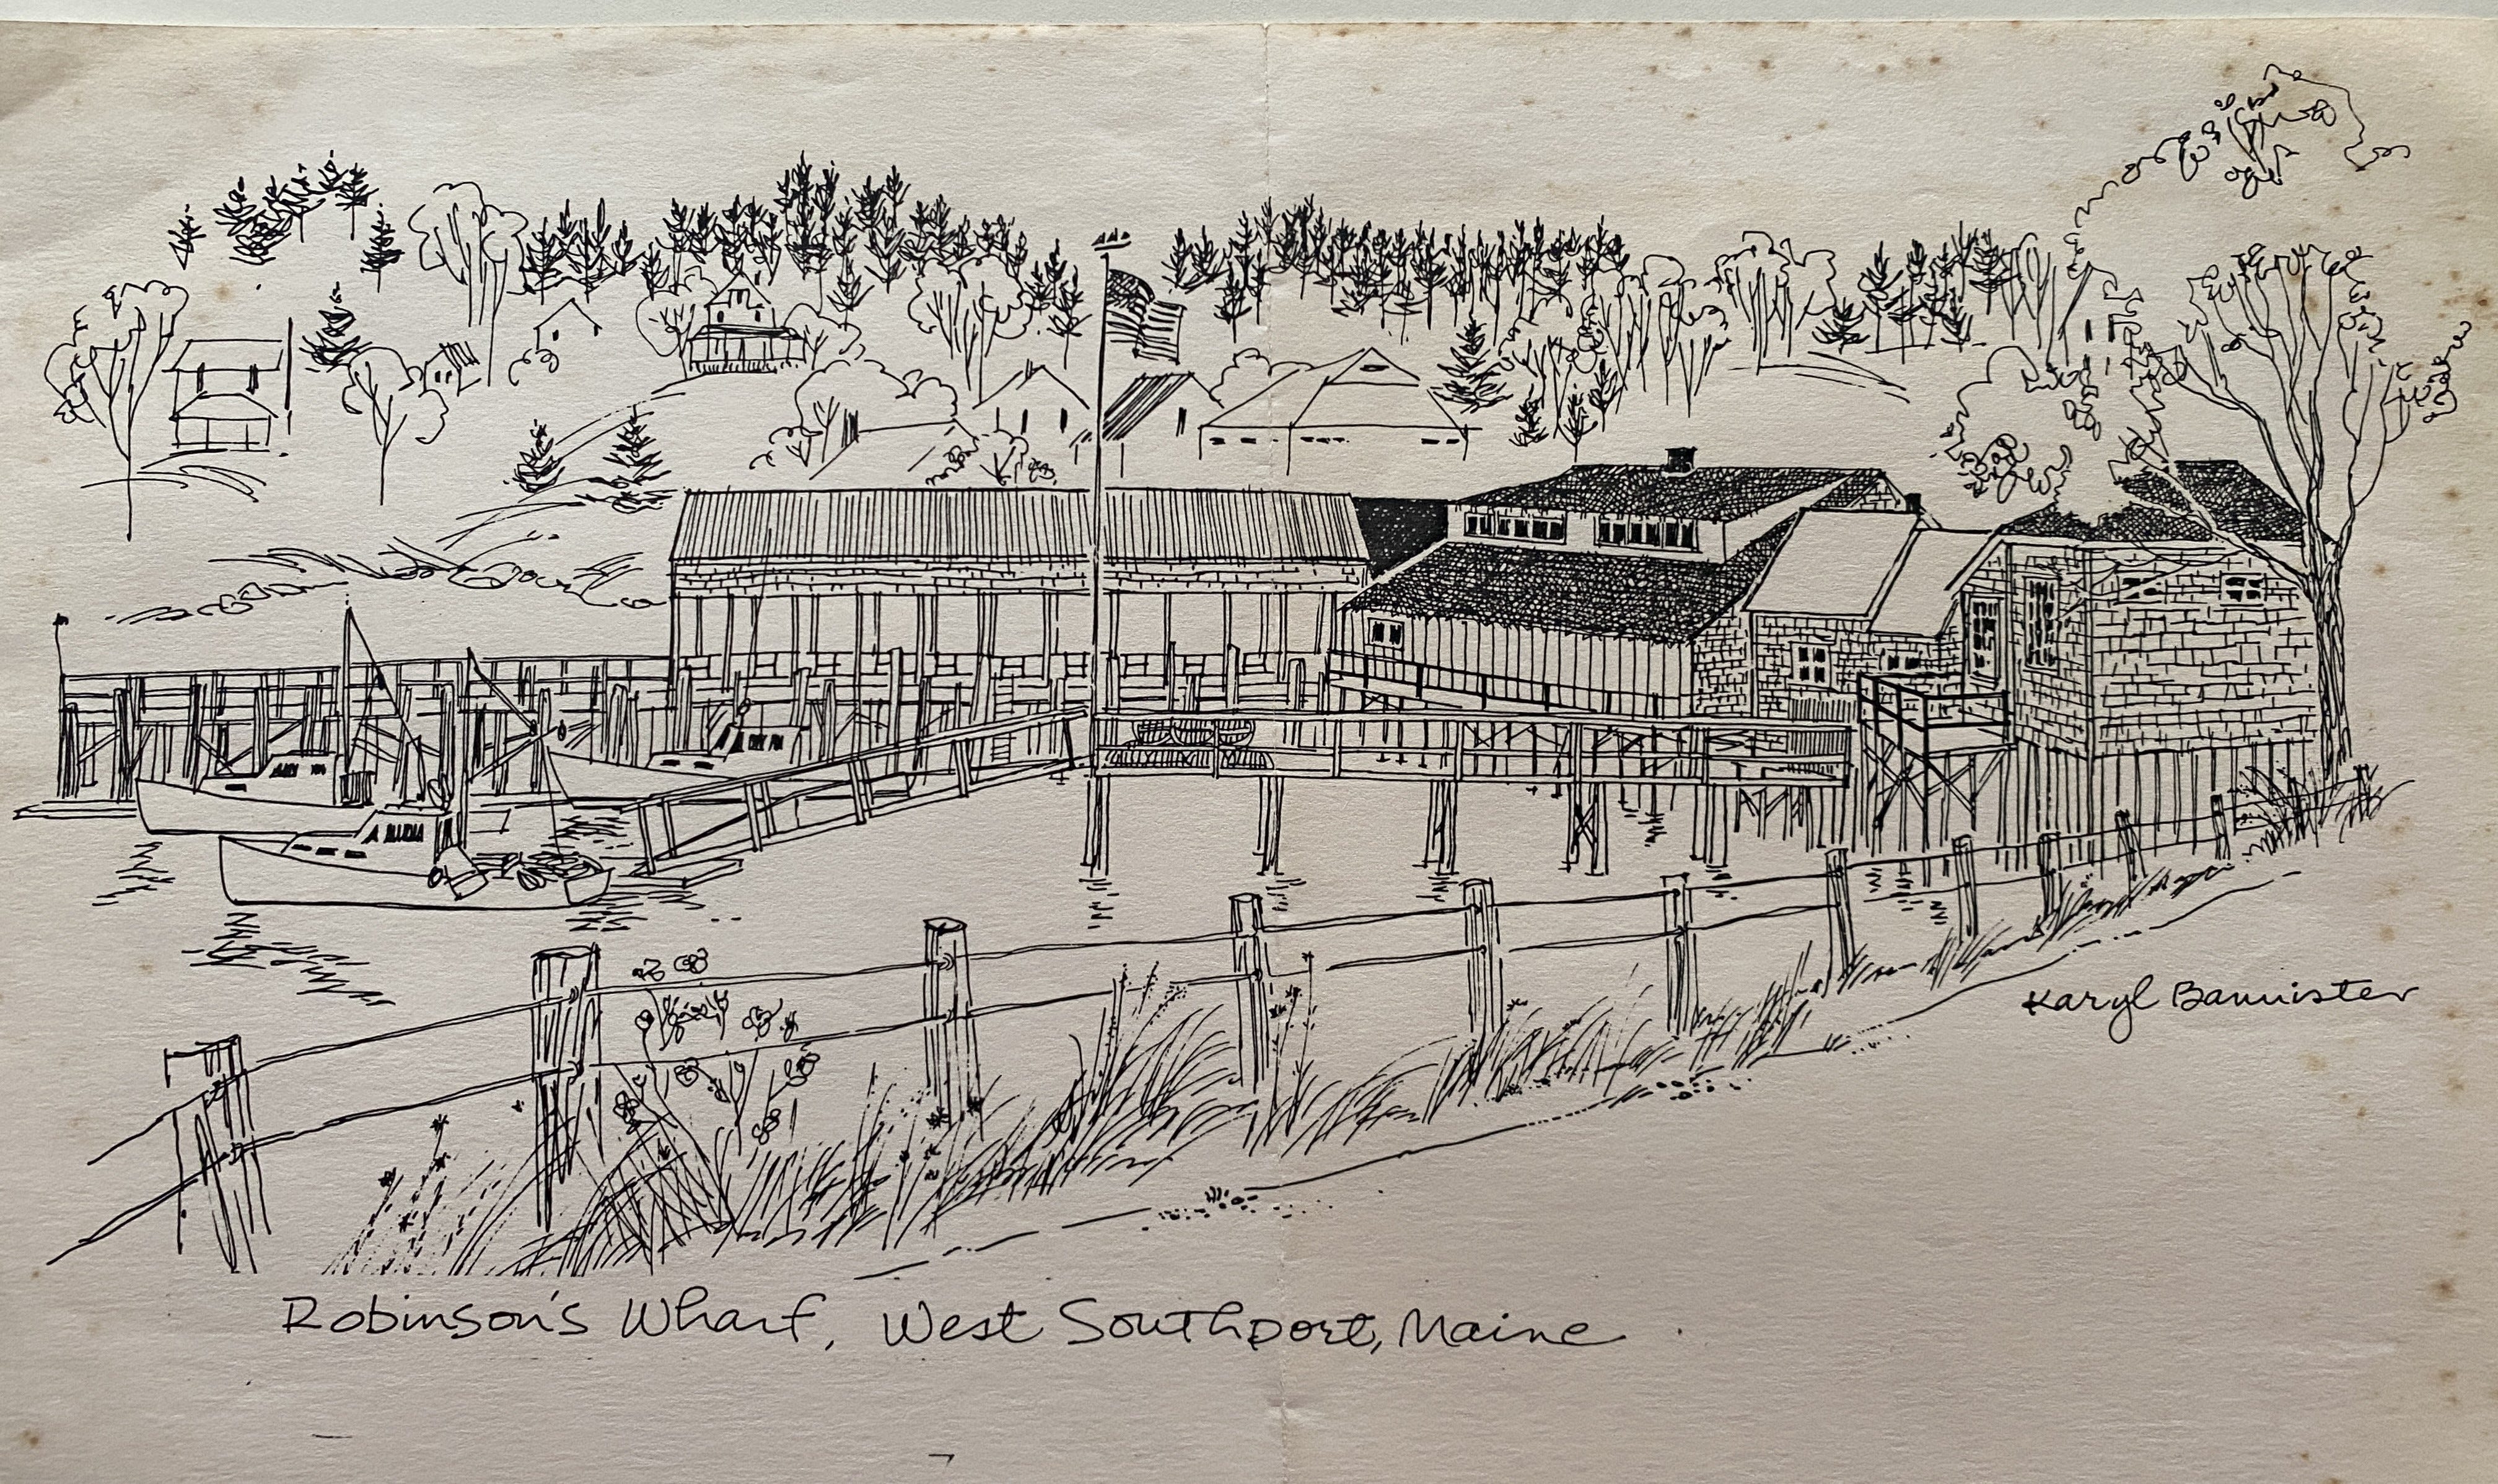 Karyl Bannister
Robinson's Wharf, West Southport, Maine